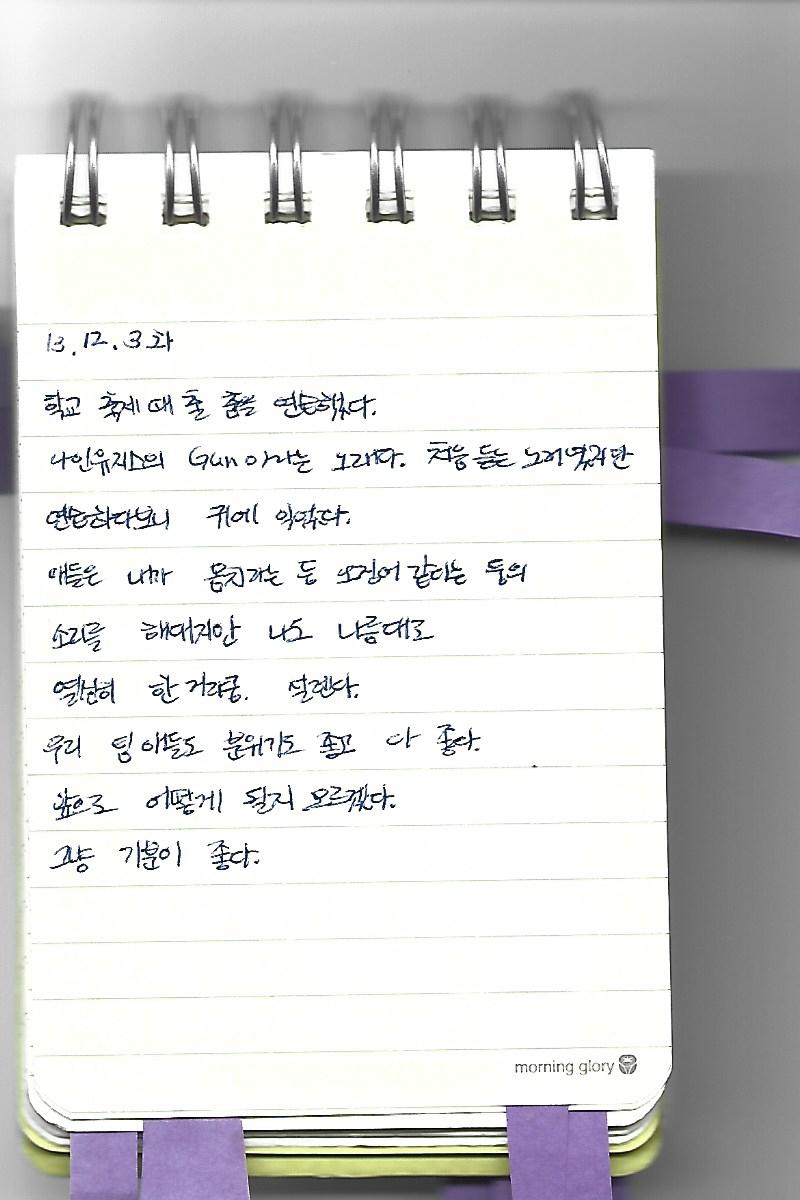 13.12.3 화
학교 축제 때 출 춤을 연습했다.
나인뮤지스의 Gun이라는 노래다. 처음 듣는 노래였지만
연습하다보니 귀에 익었다.
애들은 내가 몸치라는 둥 오징어 같다는 둥의
소리를 해대지만 나도 나름대로
열심히 한 거라궁. 설렌다.
우리 팀 애들도 분위기도 좋고 다 좋다.
앞으로 어떻게 될지 모르겠다.
그냥 기분이 좋다.
morning glory